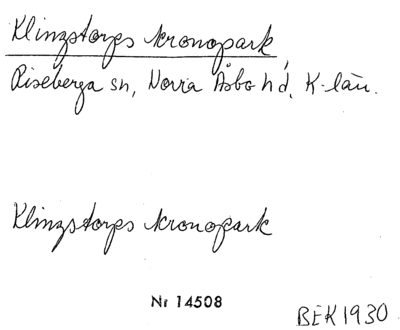 Klingstorps kronopark,
Riseberga sn, Norra Åsbo hd, K-län.
Klingstorps kronopark
Nr 14508
BEK 1930